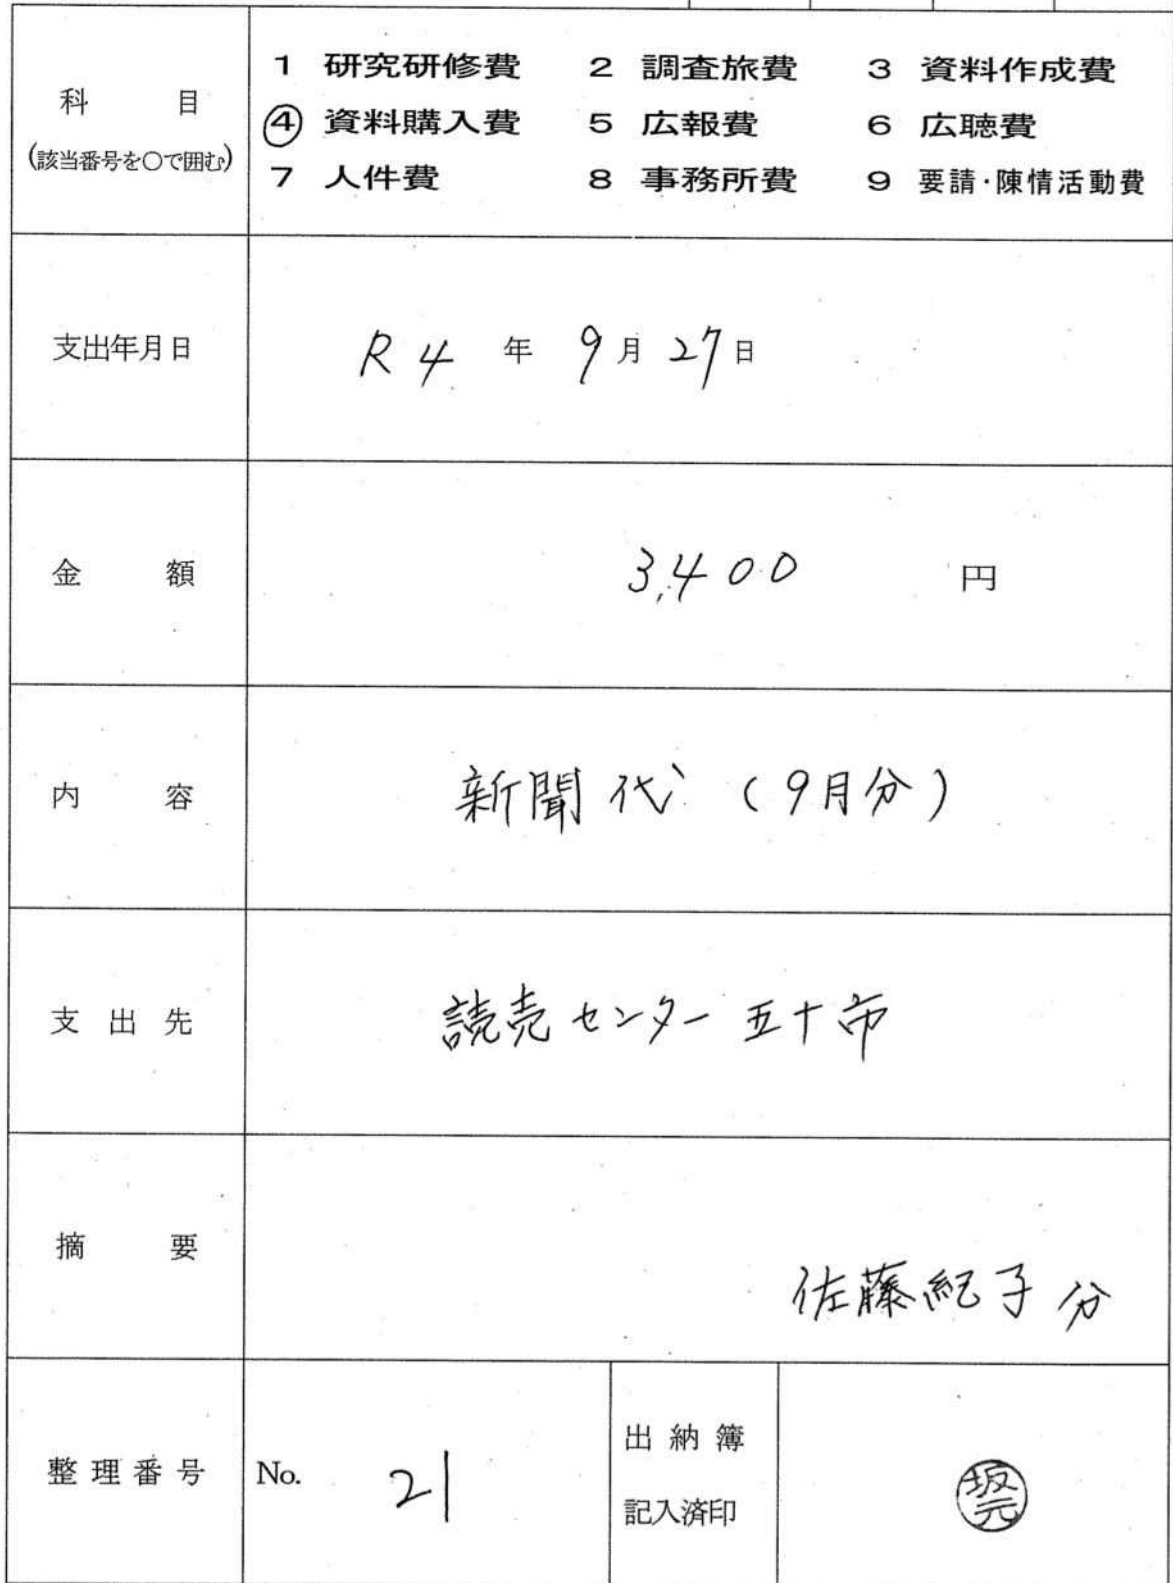 科目
(該当番号を〇で囲む)
1 研究研修費 2 調査旅費 3 資料作成費
④ 資料購入費 5 広報費 6 広聴費
7 人件費 8 事務所費 9 要請・陳情活動費
支出年月日
R4 年 9月27日
金額
3,400 円
内容
新聞代 (9月分)
支出先
読売センター五十市
摘要
佐藤紀子分
整理番号
No. 21
出納簿
記入済印
坂元